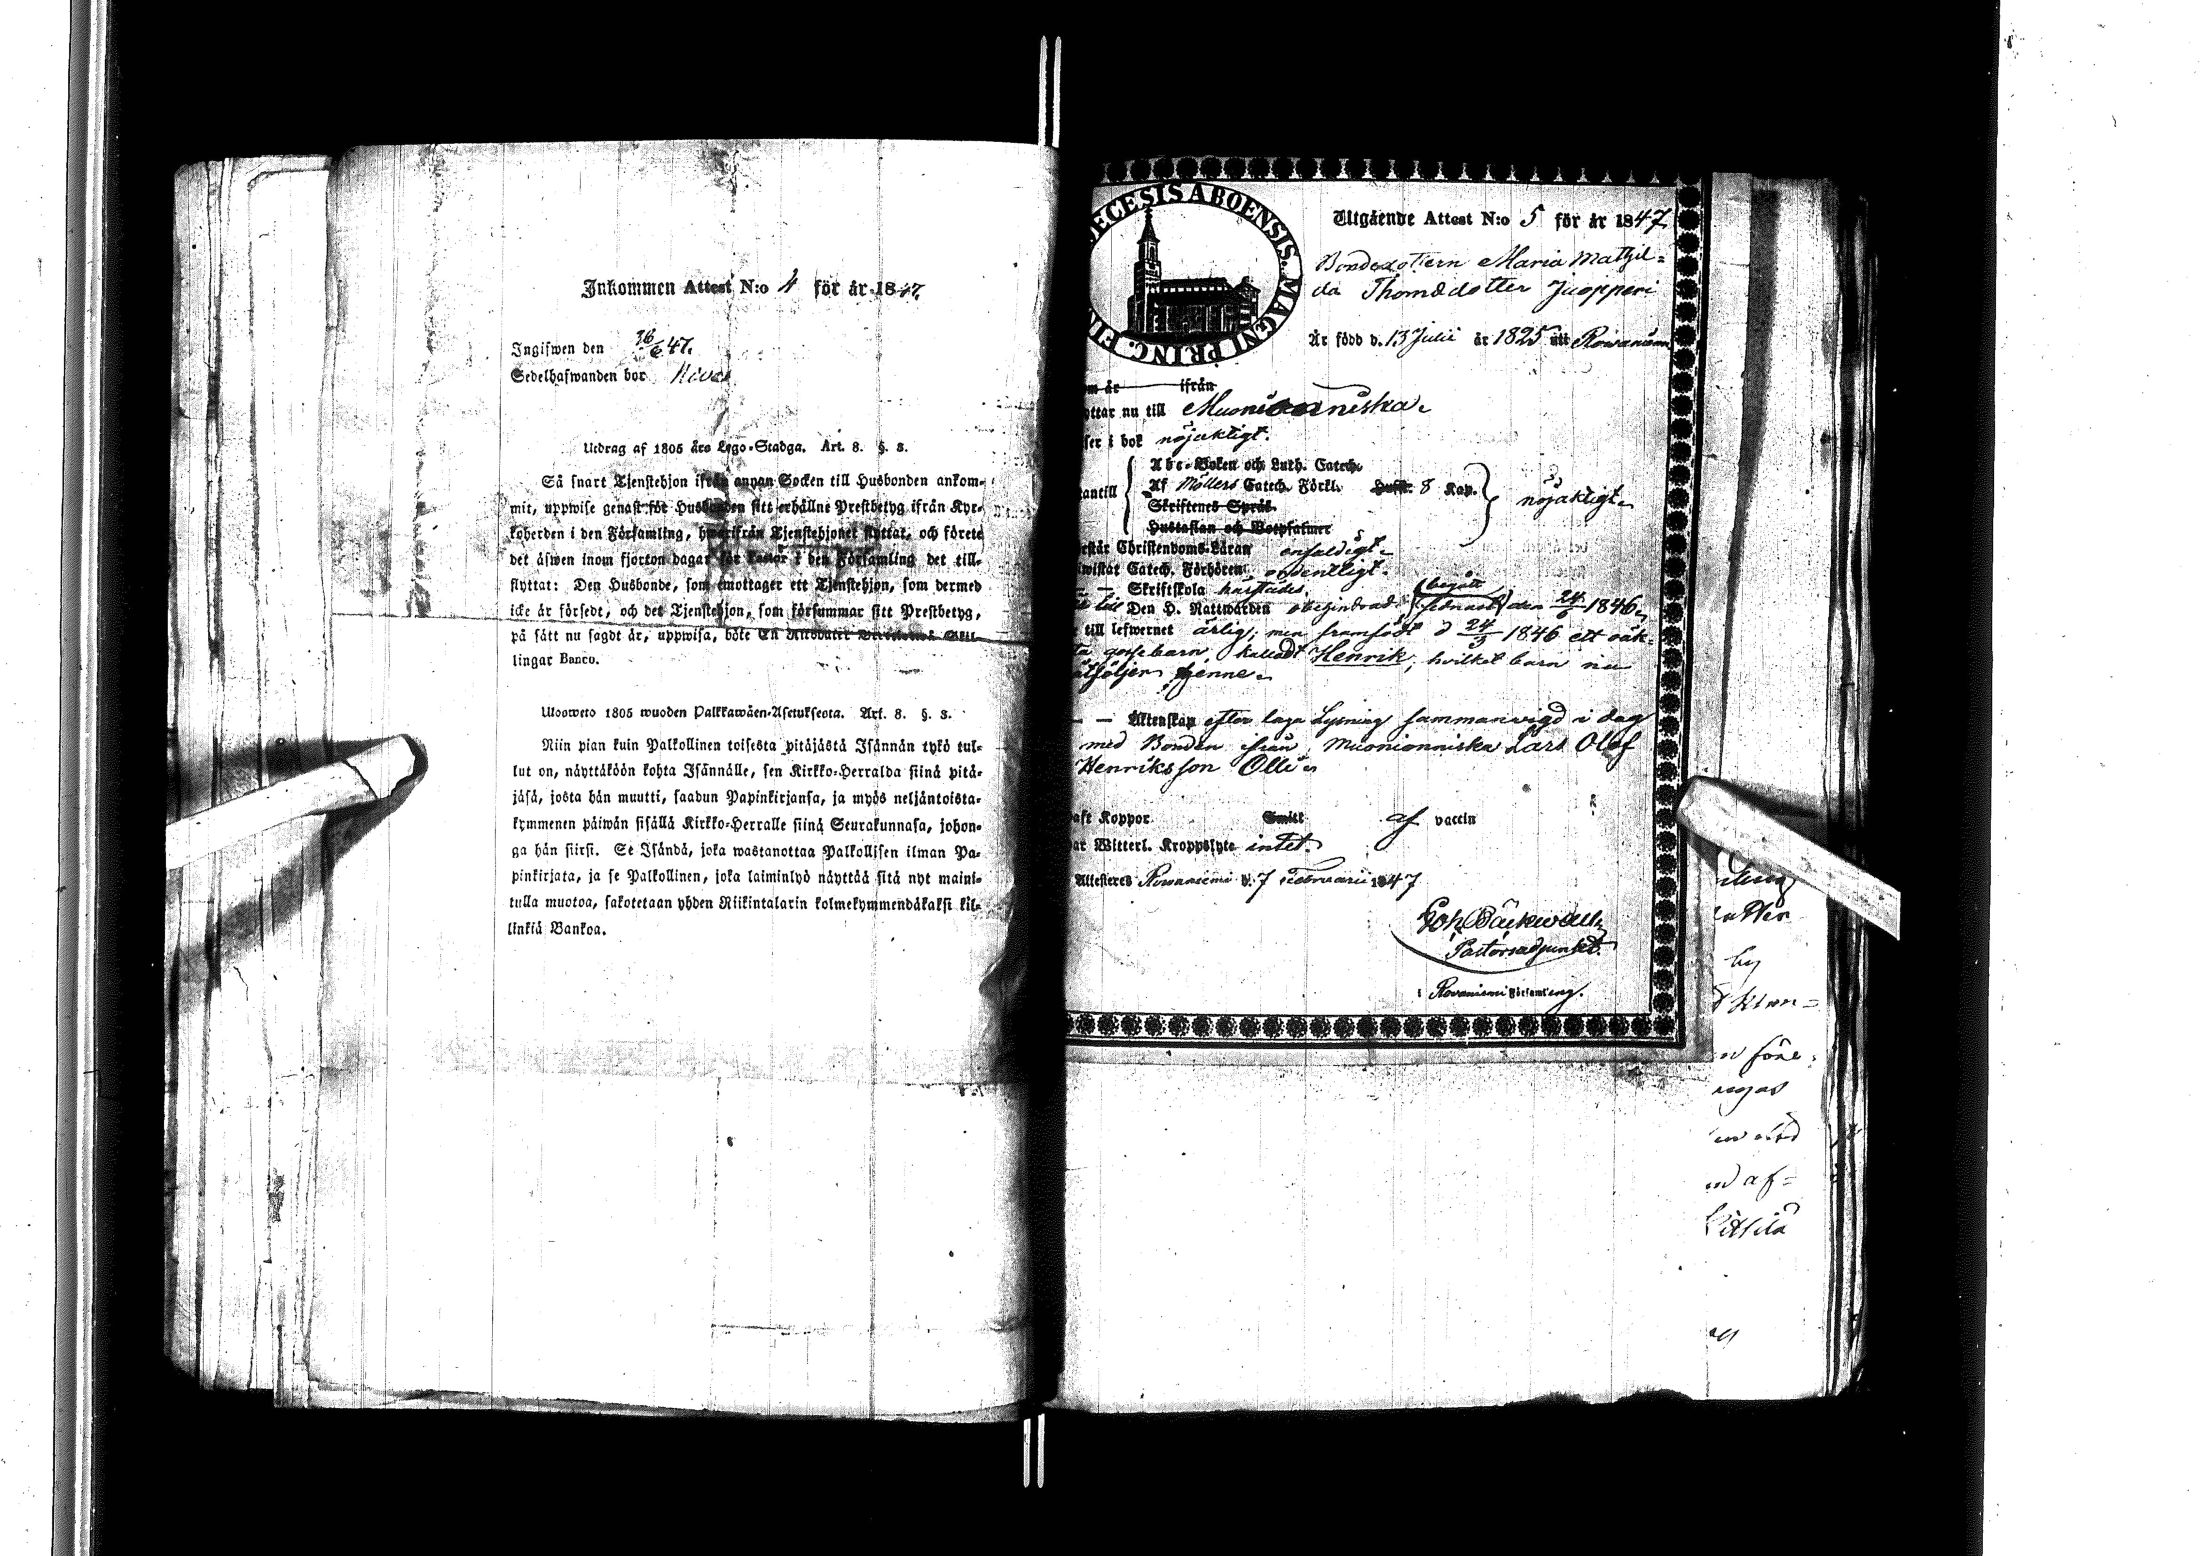 Inkommen Attest N:o 4 för år 1847.
Ingifwen den 26/6 47.
Sedelhafwanden bor
Utdrag af 1805 års Lego-Stadga. Art. 8. §. 3.
Så snart Tjenstehjon ifrån annan Socken till Husbonden ankom-
mit, uppwise genast för Husbonden sitt erhållne Prestbetyg ifrån Kyr-
koherden i den Församling, hwarifrån Tjenstehjonet flyttat, och förete
det äfwen inom fjorton dagar för Pastor i den Församling det till-
flyttat: Den Husbonde, som emottager ett Tjenstehjon, som dermed
icke är försedt, och det Tjenstehjon, som försummar sitt Prestbetyg,
på sätt nu sagdt är, uppwisa, böte En Riksdaler Skil-
lingar Banco.
Ulosweto 1805 wuoden Palkkawäen-Asetuksesta. Art. 8. §. 3.
Niin pian kuin Palkollinen toisesta pitäjästä Isännän tykö tul-
lut on, näyttäköön kohta Isännälle, sen Kirkko-Herralda siinä pitä-
jäsä, josta hän muutti, saadun Papinkirjansa, ja myös neljäntoista-
kymmenen päiwän sisällä Kirkko-Herralle siinä Seurakunnasa, johon-
ga hän siirsi. Se Isändä, joka wastanottaa Palkollisen ilman Pa-
pinkirjata, ja se Palkollinen, joka laiminlyö näyttää sitä nyt maini-
tulla muotoa, sakotetaan yhden Riikintalarin kolmekymmendäkaksi kil-
linkiä Bankoa.
ECESIS ABOENSIS. MAGNI PRINC. FIN
Utgående Attest N:o 5 för år 1847
Bondedottern Maria Mathil-
da Thomædotter Juopperi
Är född d. 13 Julii år 1825 uti Rowaniemi
om år ifrån
yttar nu till Muonionniska
ser i bok nöjaktigt.
Abc-Boken och Luth. Catech.
utantill Af Möllers Catech. Förkl. Hufst. 8 Kap. nöjaktigt.
Skriftenes Språk
Hustaflan och Botpsalmer
estår Christendoms-Läran enfaldigt.
wistat Catech. Förhören ordentligt.
— — Skriftskola härstädes.
Den H. Nattwarden obehindrad begått sednast den 24/6 1846.
till lefwernet ärlig; men framfödt d 24/3 1846 ett oäk-
ta gossebarn, kalladt Henrik, hvilket barn nu
åtföljer henne.
— — Äktenskap efter laga Lysning sammanvigd i dag
med Bonden ifrån Muonionniska Lars Olof
Henriksson Olli.
aft Koppor Smitt af vaccin
ar Witterl. Kroppslyte intet.
Attesteras Rowaniemi d. 7 Februarii 1847
Joh. Bäckwall
Pastorsadjunkt.
i Rovaniemi Församling.
by